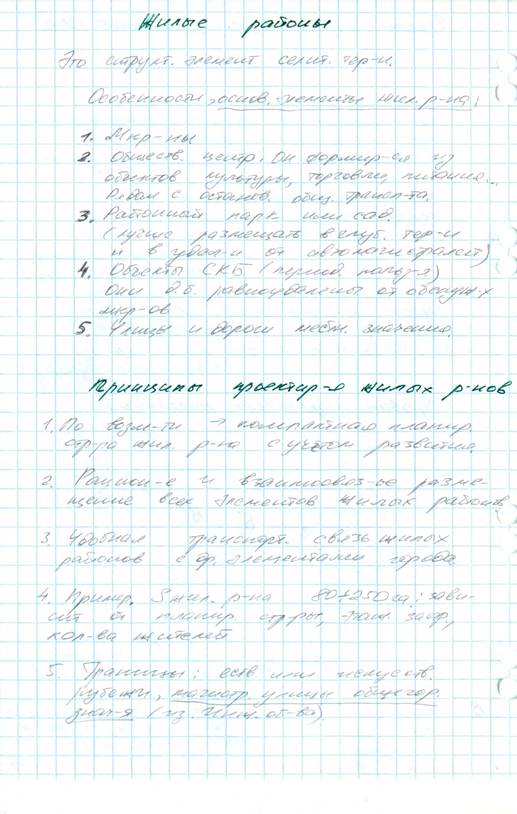 Жилые районы
Это структ. элемент селит. тер-и.
Особенности, основ. элементы жил. р-на:
1. Мкр-ны
2. Обществ. центр. Он формир-ся из
объектов культуры, торговли, питания...
Рядом с останов. общ. трансп-та.
3. Районный парк или сад
(лучше размещать в глуб. тер-и
и в удал-и от автомагистралей)
4. Объекты СКБ (период. польз-я)
Они д.б. равноудалены от обслуж-х
мкр-ов
5. Улицы и дороги местн. значения.
Принципы проектир-я жилых р-нов
1. По возм-ти → компактная планир.
стр-ра жил. р-на с учётом развития.
2. Рацион-е и взаимосвяз-ье разме-
щение всех элементов жилых районов
3. Удобная трансторт. связь жилых
районов с др. элементами города.
4. Пример. S жил. р-на 80÷250 га: зави-
сит от планир. стр-ры, этаж. застр,
кол-ва жителей
5. Границы: еств. или искусств.
рубежи, магистр. улицы общегор.
знач-я (из. инж. об-ва).